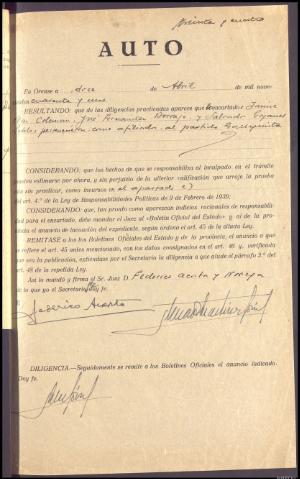 AUTO
En Orense a doce de Abril de mil nove-
cientos cuarenta y uno
RESULTANDO: que de las diligencias practicadas aparece que
Coleman, José Fernandez Borrajo, y Salvador
como afiliado al partido Galleguista
CONSIDERANDO: que los hechos de que se responsabiliza al inculpado en el trámite
pueden estimarse por ahora, y sin perjuicio de la ulterior calificación que arroje la prueba
sin practicar, como incursos en el apartado c)
del art. 4.º de la Ley de Responsabilidades Políticas de 9 de Febrero de 1939;
CONSIDERANDO: que, tan pronto como aparezcan indicios racionales de responsabilidad
para el encartado, debe mandar el Juez al «Boletín Oficial del Estado» y al de la pro-
vincia el anuncio de incoación del expediente, según ordena el art. 45 de la citada Ley.
REMITASE a los Boletines Oficiales del Estado y de la provincia, el anuncio a que
se refiere el art. 45 antes mencionado, con los datos consignados en el art. 46 y, verificada
que sea la publicación, extiéndase por el Secretario la diligencia a que alude el párrafo 3.º del
art. 48 de la repetida Ley.
Así lo mandó y firma el Sr. Juez D. Federico Acosta y
de lo que yo el Secretario doy fe.
Federico Acosta
DILIGENCIA.—Seguidamente se remite a los Boletines Oficiales el anuncio indicado.
Doy fe.